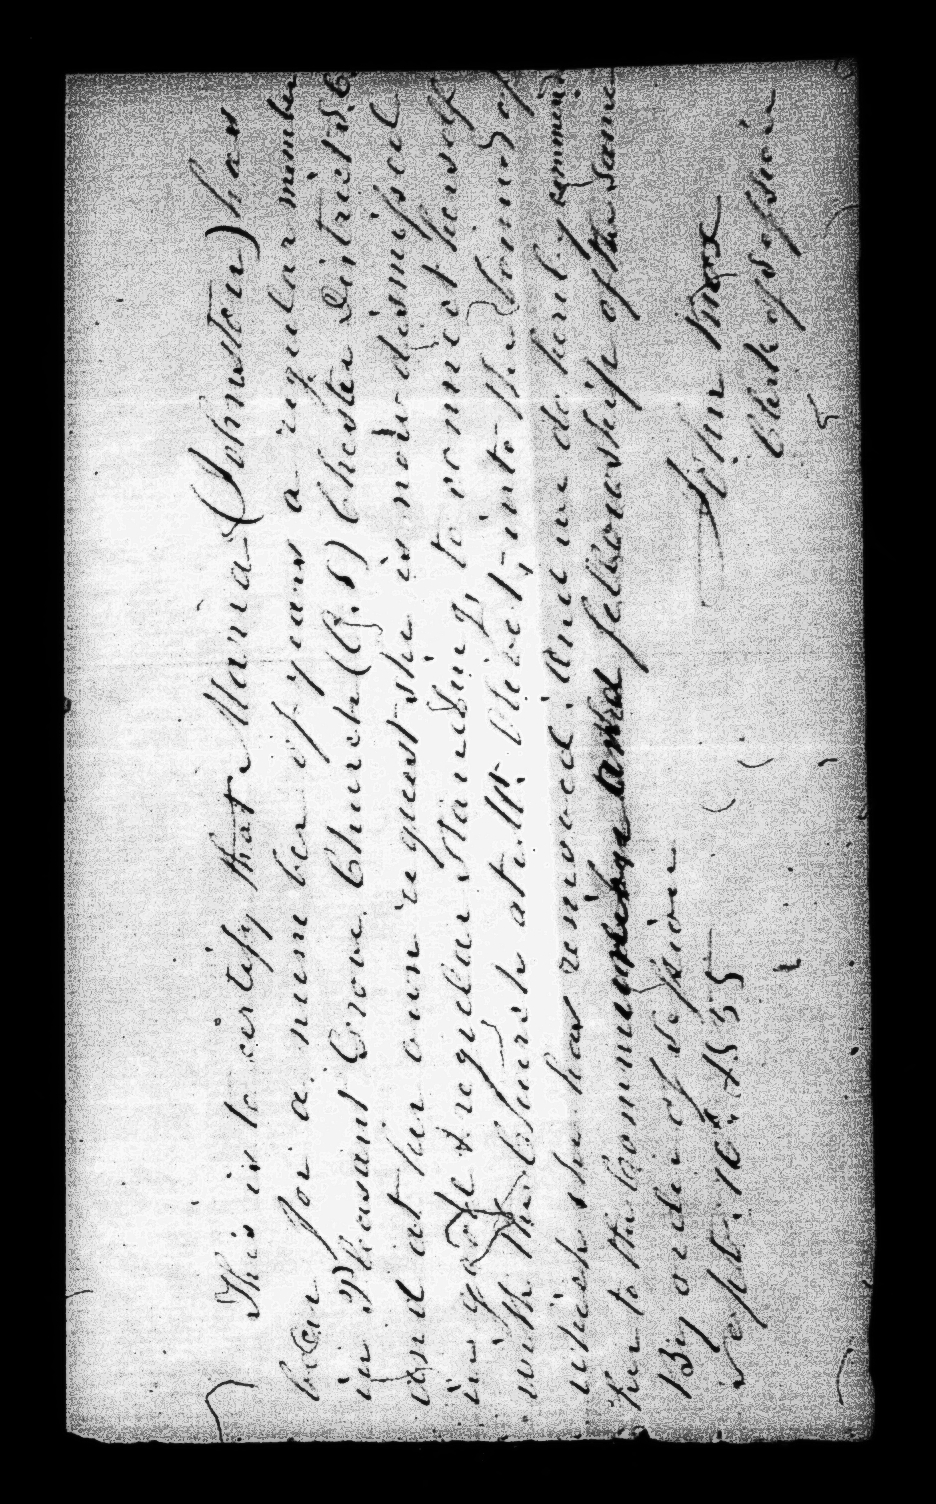 This is to certify that Maria (Johnston) has
been for a number of years a regular member
in Pleasant Grove Church (A.S) Chester District S.C.
and at her own request she is now dismissed
in good & regular standing, to connect herself
with the Church at Mt Olivet, into the bounds of
which she has removed. And we do herily commend
her to the communion and fellowship of the same
By order of Session
Sept. 10th 1855
John Knox
Clerk of Session